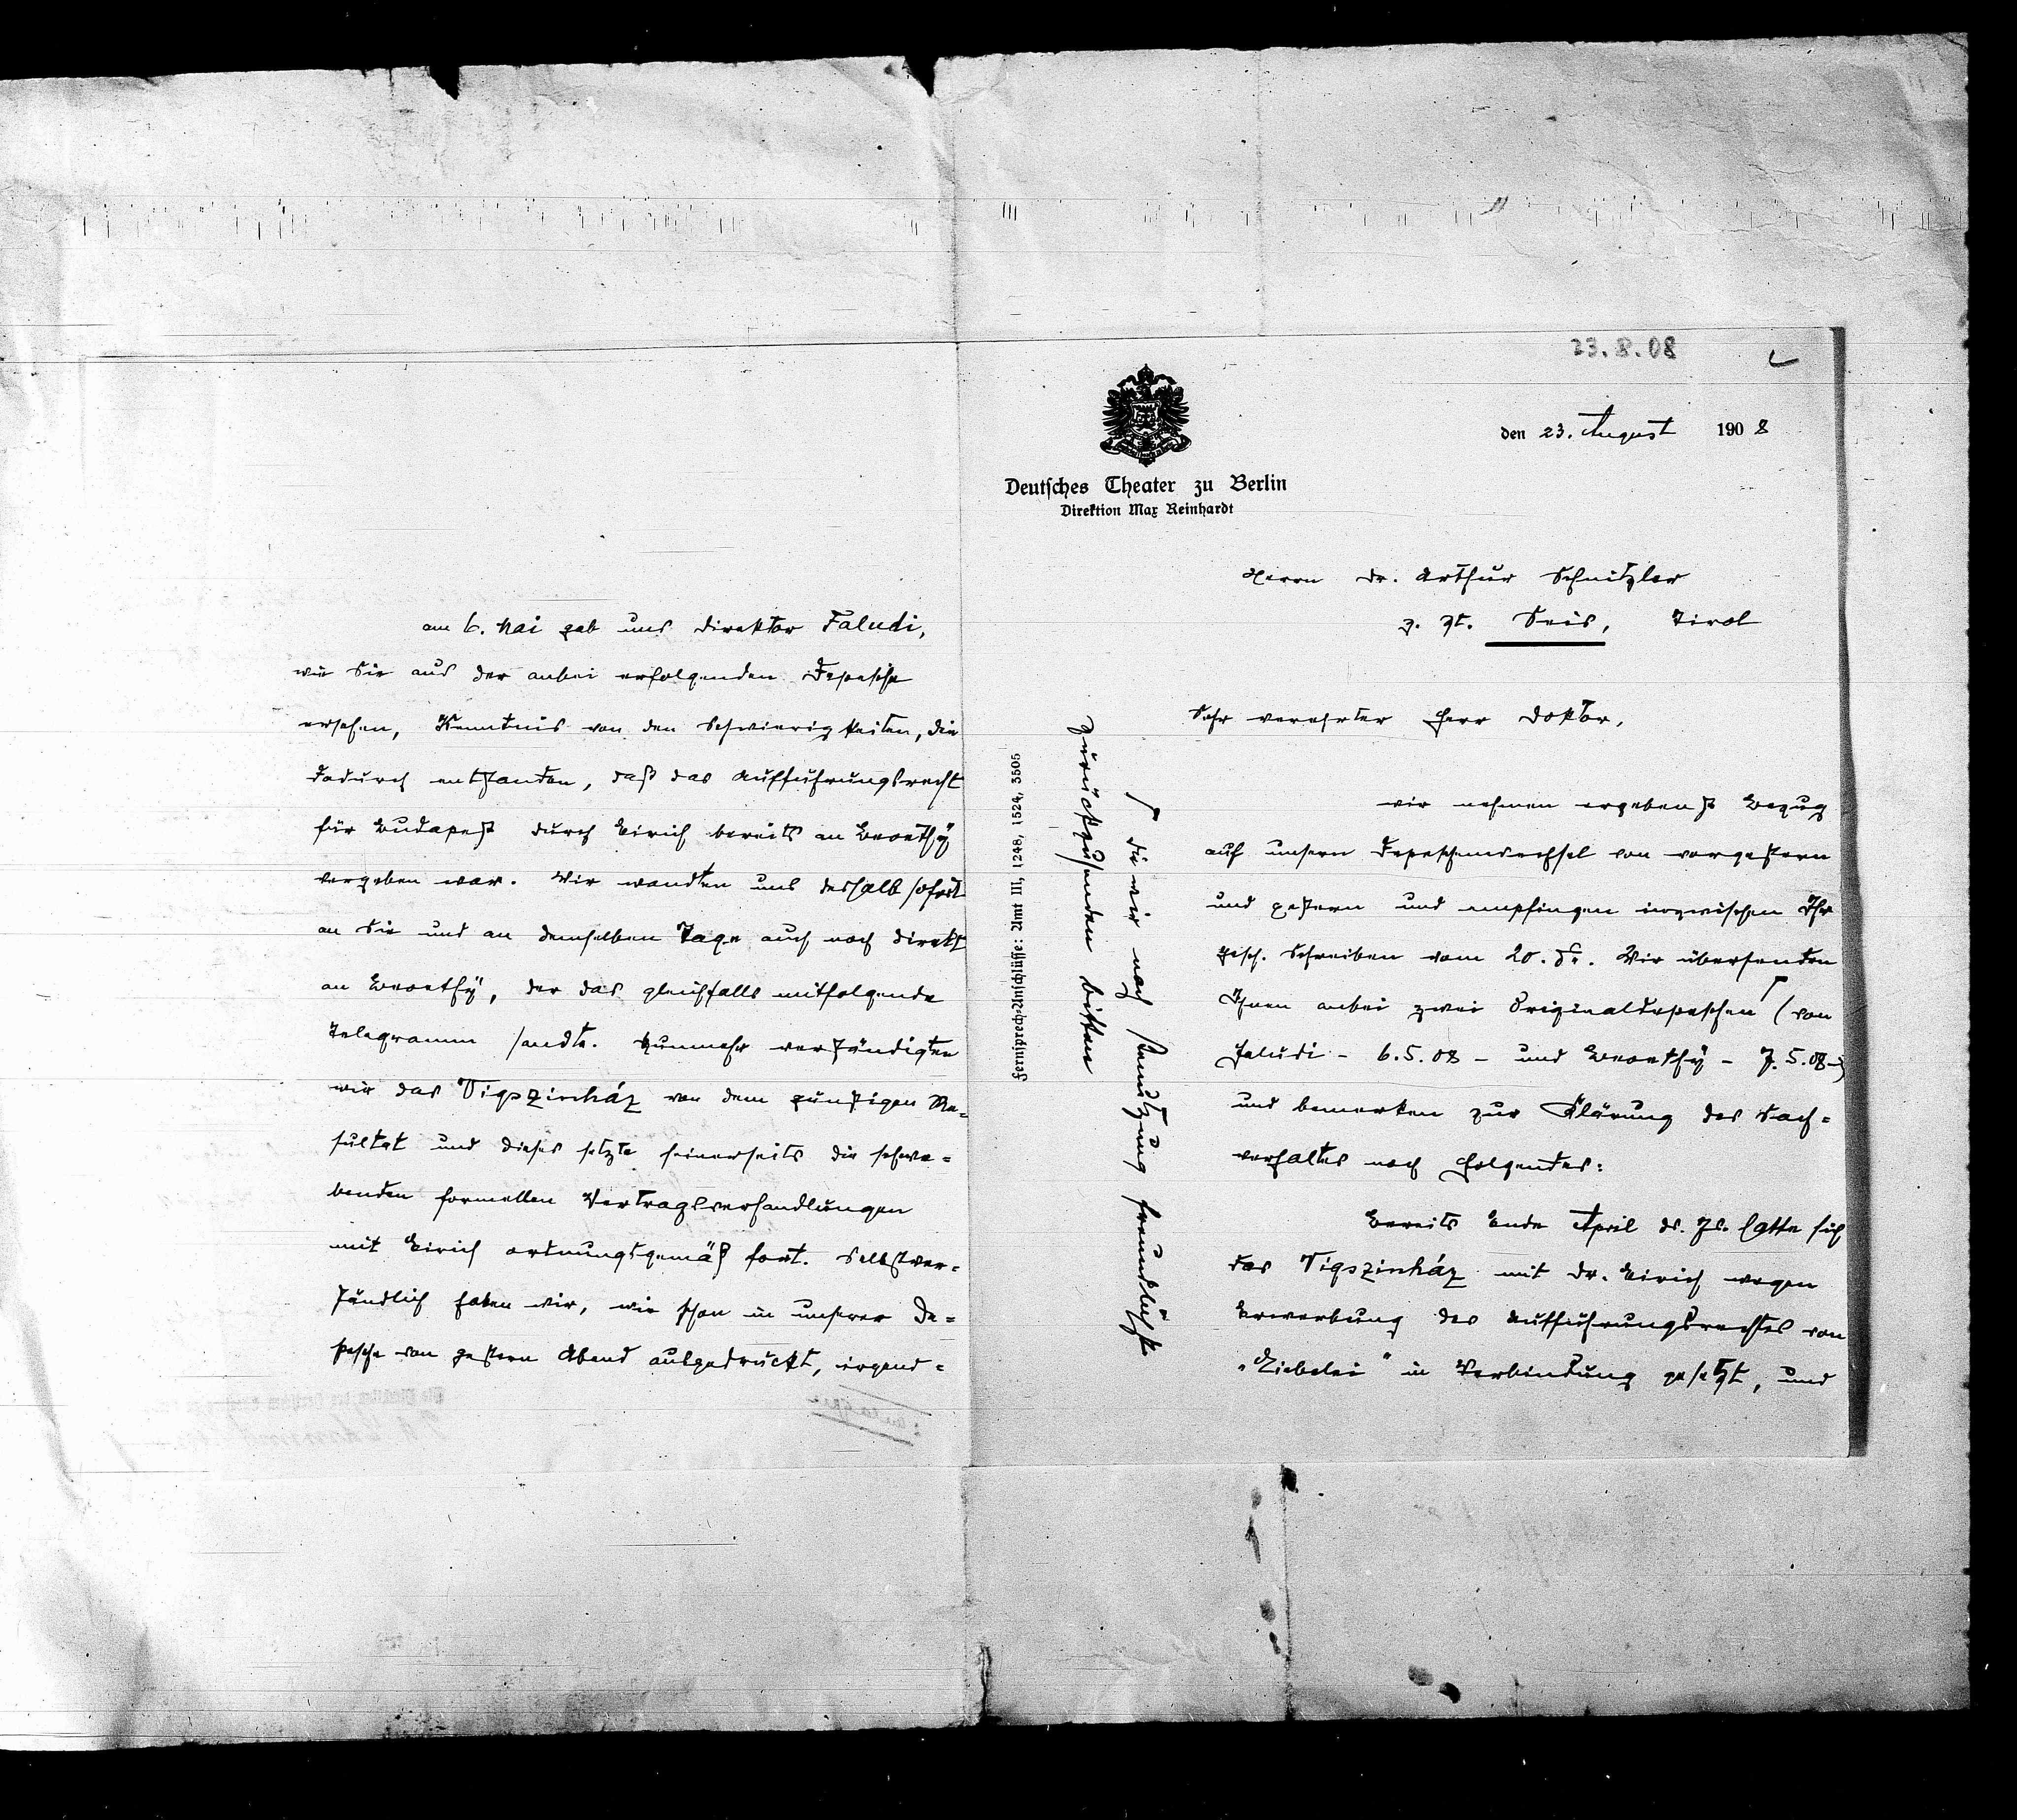 23.8.08
den 23. August 1908
Deutsches Theater zu Berlin
Direktion Max Reinhardt
Herrn Dr. Arthur Schnitzler
z. Zt. Seis, Tirol
Sehr verehrter Herr Doktor,
wir nehmen ergebenst Bezug
auf unsern Depeschenwechsel von vorgestern
und gestern und empfingen inzwischen Ihr
gesch. Schreiben vom 20. ds. Wir übersenden
Ihnen anbei zwei Originaldepeschen ⌈ (von
Faludi - 6.5.08 - und Beoethÿ - 7.5.08 -)
und bemerken zur Klärung des Sach=
verhaltes noch Folgendes:
Bereits Ende April ds. Js. hatte sich
das Vigszinház mit Dr. Eirich wegen
Erwerbung des Aufführungsrechtes von
„Liebelei" in Verbindung gesetzt, und
⌈ die wir nach Benutzung freundlichst
zurückzusenden bitten
Fernsprech-Anschlüsse: Amt III, 1248, 1524, 3505
am 6. Mai gab uns Direktor Faludi,
wie Sie aus der anbei erfolgenden Depesche
ersehen, Kenntnis von den Schwierigkeiten, die
dadurch entstanden, daß das Aufführungsrecht
für Budapest durch Eirich bereits an Beoethÿ
vergeben war. Wir wandten uns deshalb sofort
an Sie und an demselben Tage auch noch direkt
an Beoethÿ, der das gleichfalls mitfolgende
Telegramm sandte. Nunmehr verständigten
wir das Vigszinház von dem günstigen Re=
sultat und dieses setzte seinerseits die schwe=
benden formellen Vertragsverhandlungen
mit Eirich ordnungsgemäß fort. Selbstver=
ständlich haben wir, wie schon in unserer De=
pesche von gestern Abend ausgedrückt, irgend=